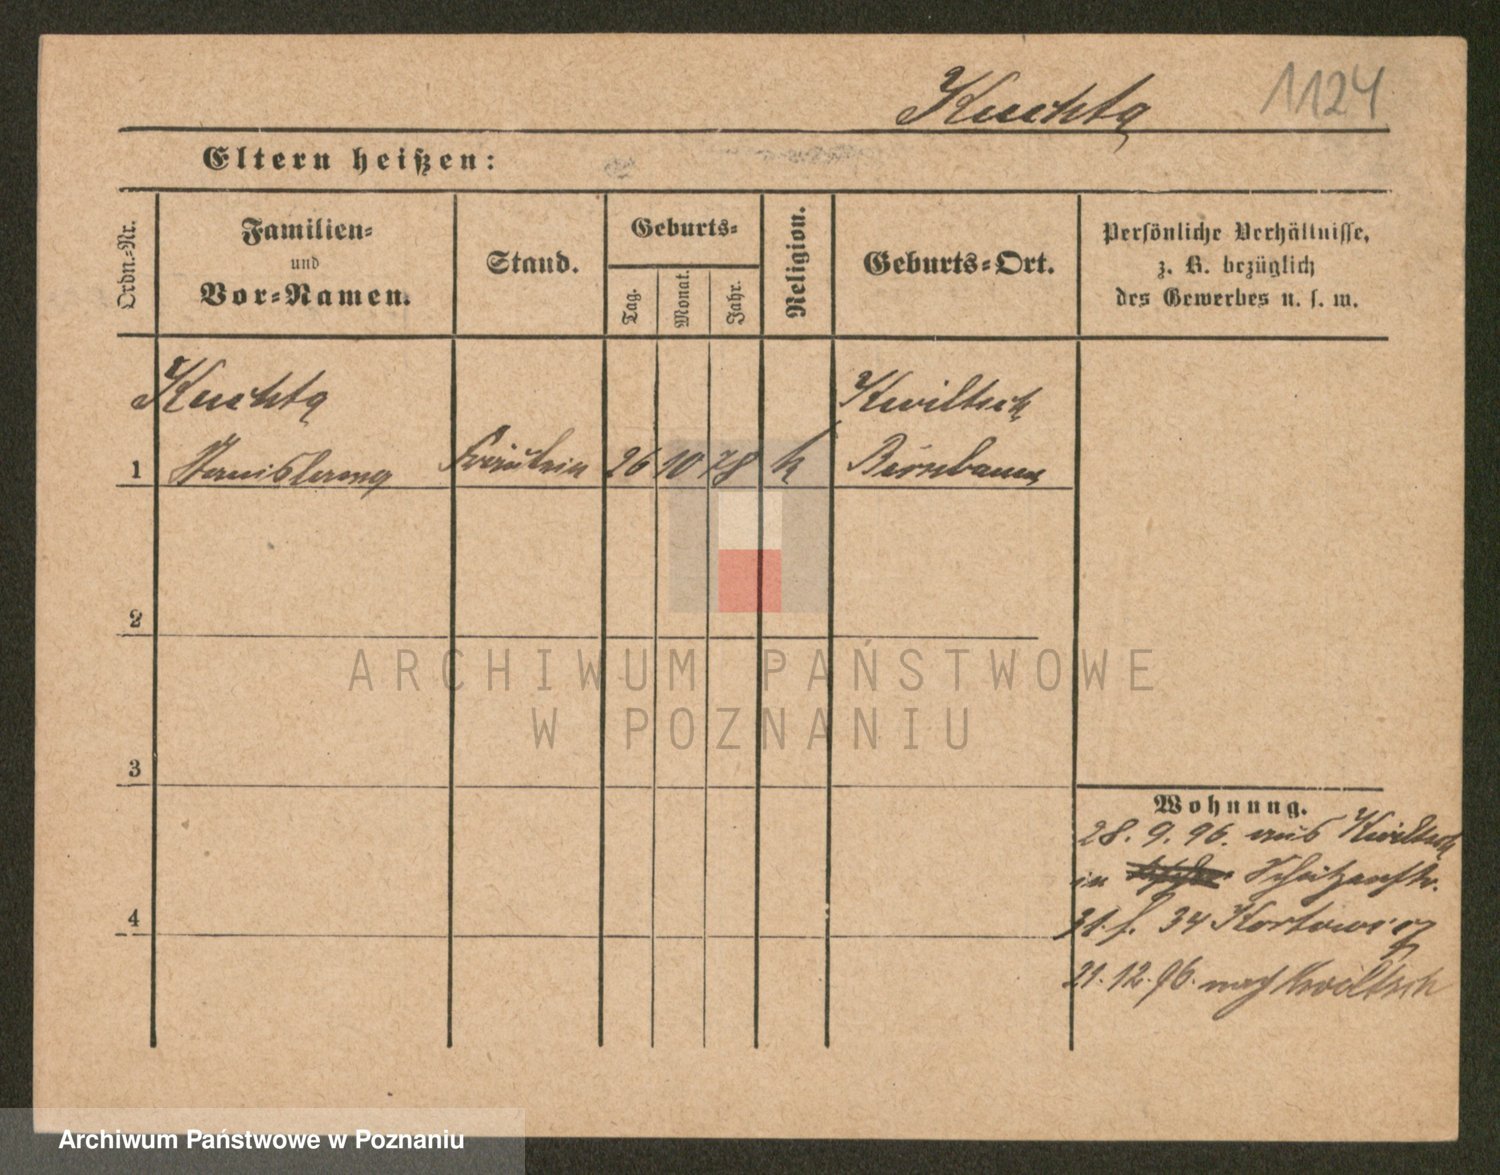 Kuchta 1124
Eltern heißen:
Ordn.-Nr.
Familien-
und
Vor-Namen.
Stand.
Geburts-
Tag.
Monat.
Jahr.
Religion.
Geburts-Ort.
Persönliche Verhältnisse,
z. B. bezüglich
des Gewerbes u. s. w.
Kuchta
Kwiltsch
1 Stanislawa Fräulein 26 10 78 k Birnbaum
2
3
4
Wohnung.
28. 9. 96. aus Kwiltsch
in Schützenstr.
31. f. 34
21. 12. 96. nach Kwiltsch
ARCHIWUM PAŃSTWOWE
W POZNANIU
Archiwum Państwowe w Poznaniu